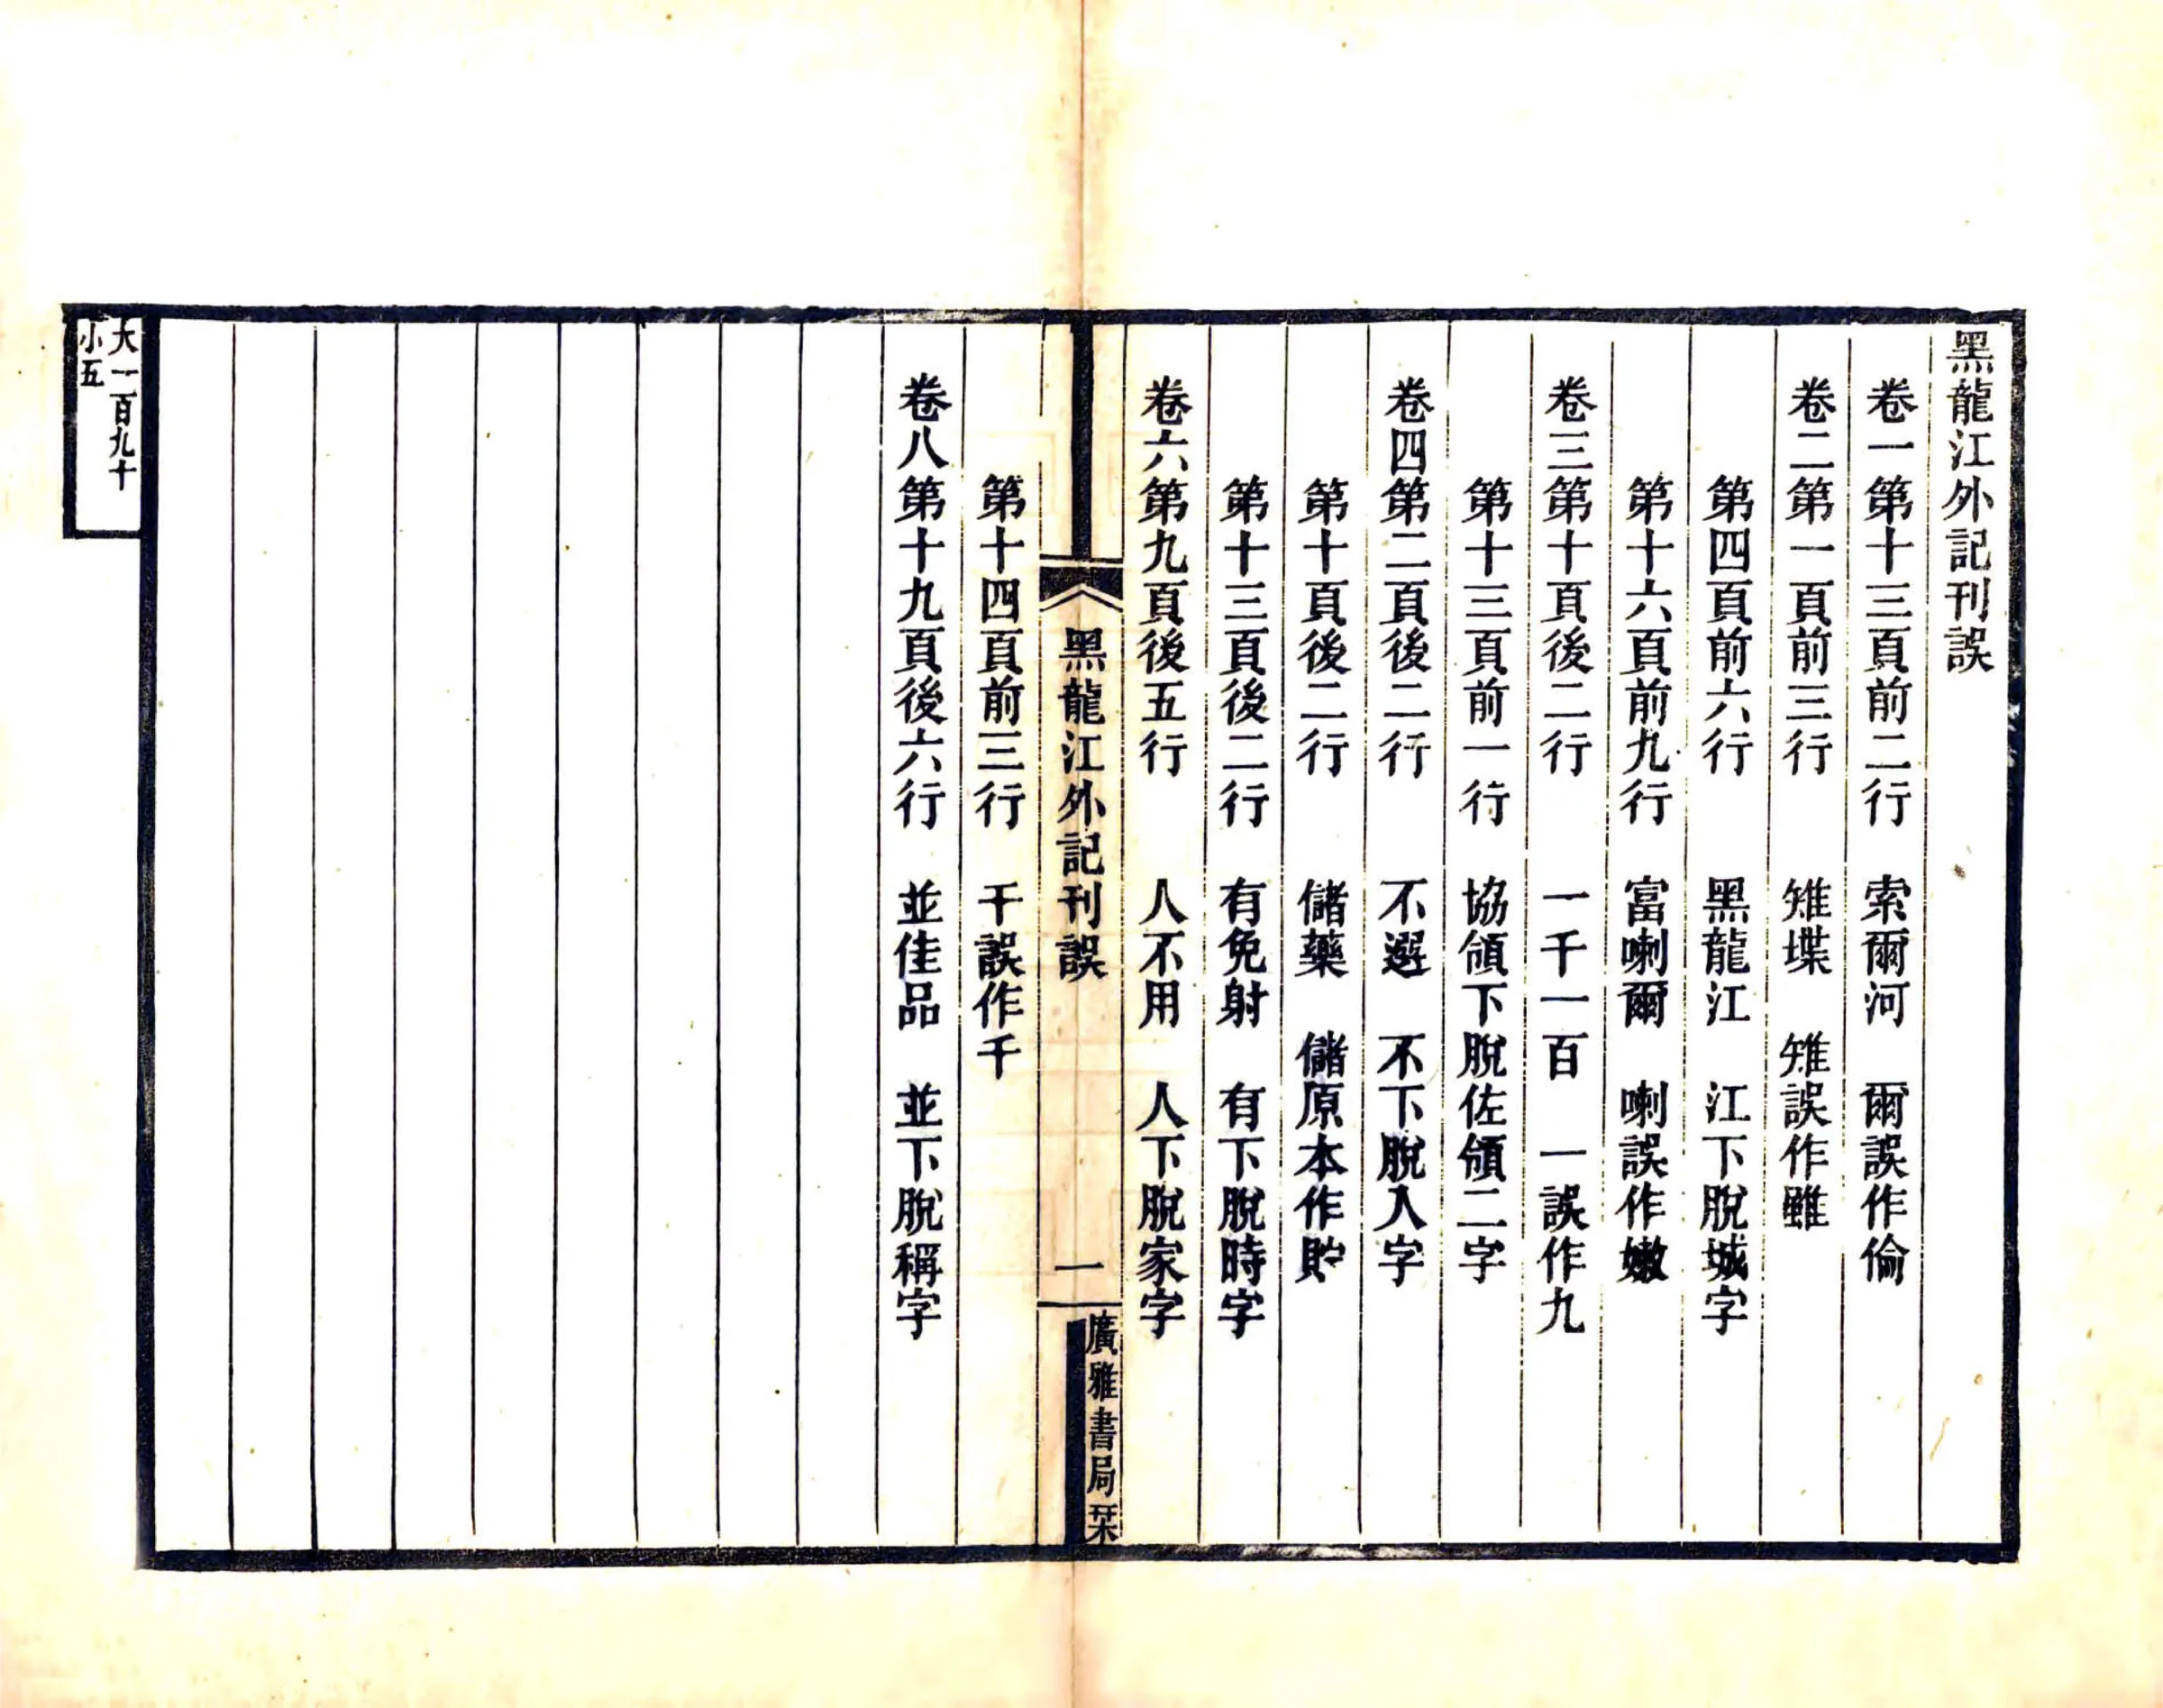 黑龍江外記刊誤
卷一第十三頁前二行　索爾河　爾誤作倫
卷二第一頁前三行　雉堞　雉誤作雖
第四頁前六行　黑龍江　江下脫城字
第十六頁前九行　富喇爾　喇誤作嫩
卷三第十頁後二行　一千一百　一誤作九
第十三頁前一行　協領下脫佐領二字
卷四第二頁後二行　不選　不下脫入字
第十頁後二行　儲藥　儲原本作貯
第十三頁後二行　有免射　有下脫時字
卷六第九頁後五行　人不用　人下脫家字
黑龍江外記刊誤
一
廣雅書局栞
第十四頁前三行　干誤作千
卷八第十九頁後六行　並佳品　並下脫稱字
大一百九十
小五